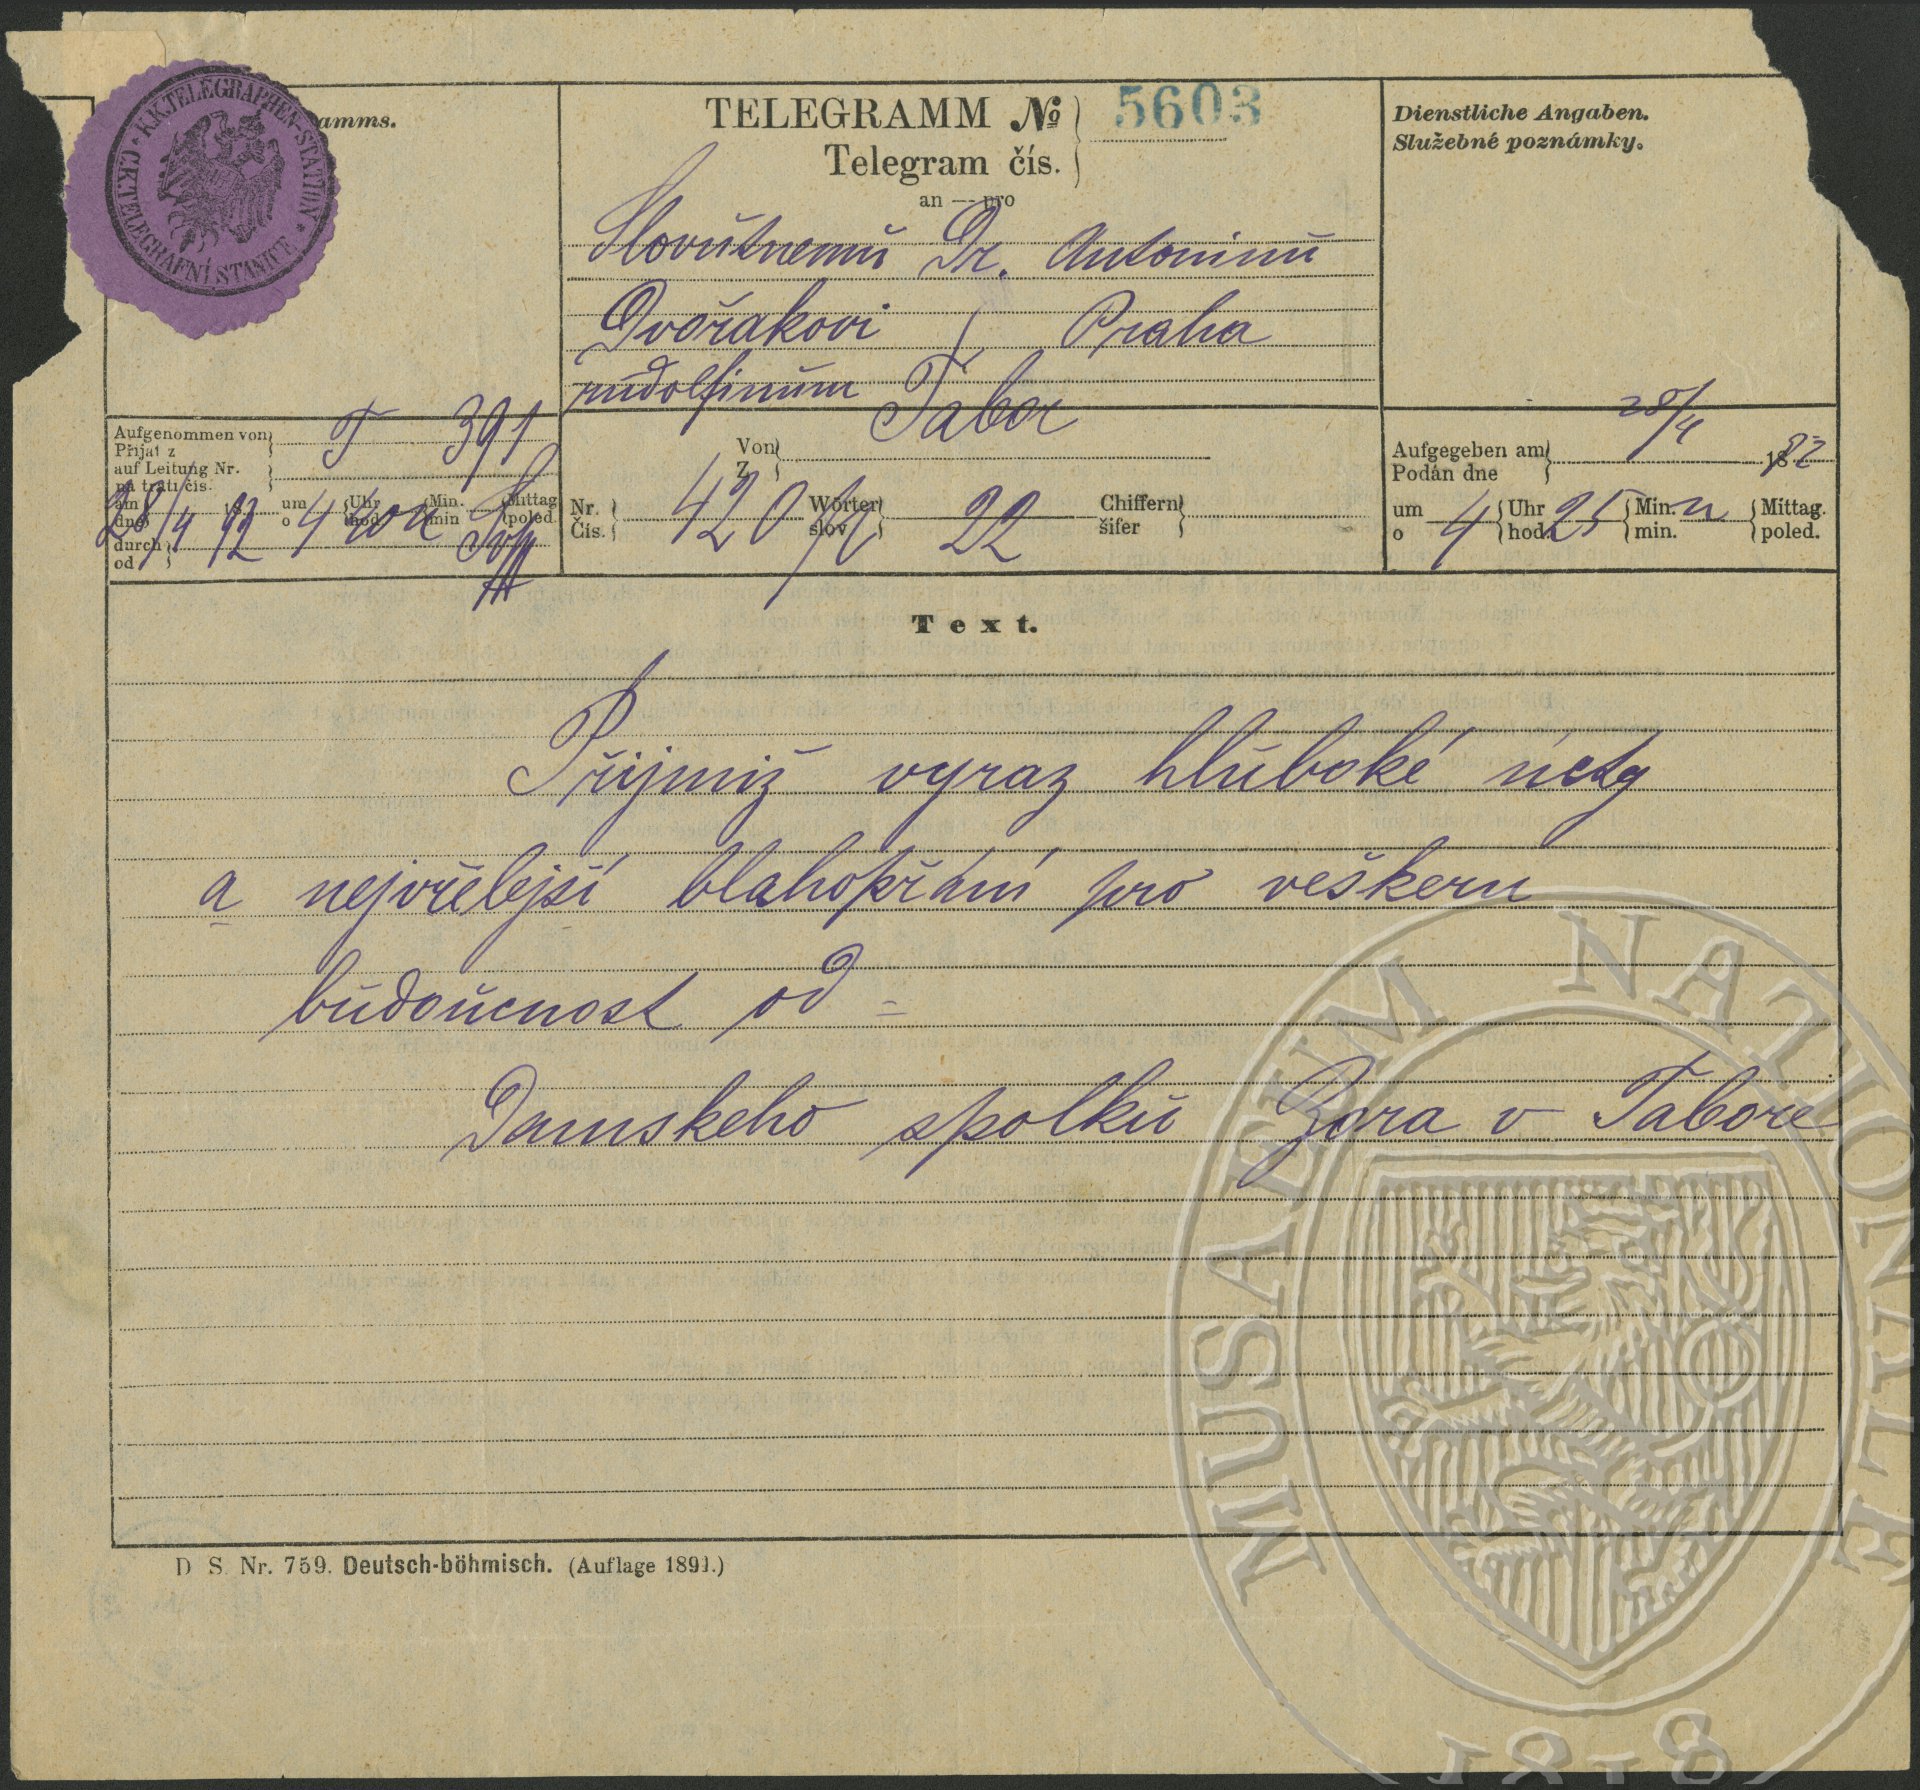 K.K.TELEGRAPHEN-STATION * C.K.TELEGRAFNÍ STANICE *
amms.
TELEGRAMM № 5603
Telegram čís.
an — pro
Slovutnemu Dr. Antoninu
Dvořakovi / Praha
rudolfinum
Dienstliche Angaben.
Služebné poznámky.
Aufgenommen von T 391
Přijat z
auf Leitung Nr.
na trati čís.
am 28/4 92 um 4 Uhr 40 Min. n Mittag
dne o hod. min poled.
durch
od
Von Tabor
Z
Nr. 420 Wörter 22 Chiffern
Čís. slov šifer
Aufgegeben am 28/4 1892
Podán dne
um 4 Uhr 25 Min. n Mittag.
o hod. min. poled.
Text.
Přijmiž vyraz hluboké úcty
a nejvřelejší blahopřání pro veškeru
budoucnost od =
Damskeho spolku Zora v Tabore
D S. Nr. 759. Deutsch-böhmisch. (Auflage 1891.)
MUSAEUM NATIONALE
1818